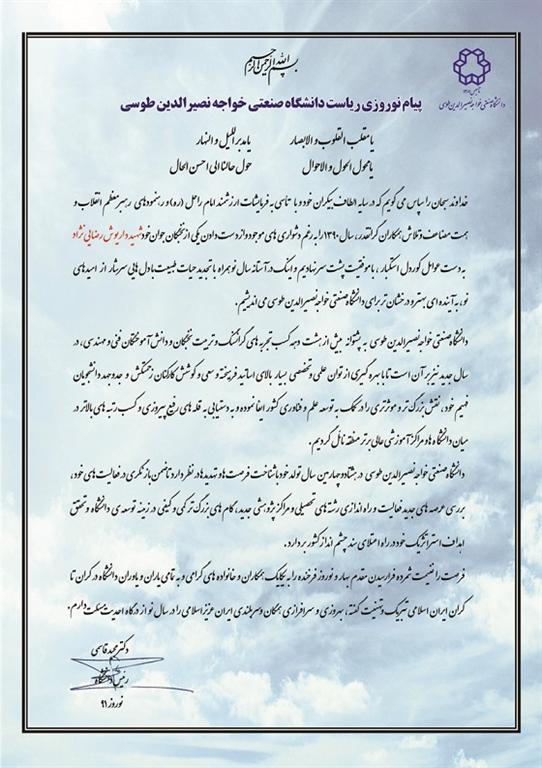 بسم الله الرحمن الرحیم
تاسیس ۱۳۰۷
دانشگاه صنعتی خواجه نصیرالدین طوسی
پیام نوروزی ریاست دانشگاه صنعتی خواجه نصیرالدین طوسی
یا مقلب القلوب و الابصار یا مدبر اللیل و النهار
یا محول الحول و الاحوال حول حالنا الی احسن الحال
خداوند سبحان را سپاس می گویم که در سایه الطاف بیکران خود و با تأسی به فرمایشات ارزشمند امام راحل (ره) و رهنمودهای رهبر معظم انقلاب و
همت مضاعف و تلاش همکاران گرانقدر، سال ۱۳۹۰ را به رغم دشواری های موجود و از دست دادن یکی از نخبگان جوان خود شهید داریوش رضایی نژاد
به دست عوامل کوردل استکبار، با موفقیت پشت سر نهادیم و اینک در آستانه سال نو همراه با تجدید حیات طبیعت با دل هایی سرشار از امیدهای
نو، به آینده ای بهتر و درخشان تر برای دانشگاه صنعتی خواجه نصیرالدین طوسی می اندیشیم.
دانشگاه صنعتی خواجه نصیرالدین طوسی به پشتوانه بیش از هشت دهه کسب تجربه های گرانسنگ و تربیت نخبگان و دانش آموختگان فنی و مهندسی، در
سال جدید نیز بر آن است تا با بهره گیری از توان علمی و تخصصی بسیار بالای اساتید فرهیخته و سعی و کوشش کارکنان زحمتکش و جد و جهد دانشجویان
فهیم خود، نقش بزرگ تر و موثرتری را در کمک به توسعه علم و فناوری کشور ایفا نموده و به دستیابی به قله های رفیع پیروزی و کسب رتبه های بالاتر در
میان دانشگاه ها و مراکز آموزشی عالی برتر منطقه نائل گردیم.
دانشگاه صنعتی خواجه نصیرالدین طوسی در هشتاد و چهارمین سال تولد خود با شناخت فرصت ها و تهدیدها در نظر دارد تا ضمن بازنگری در فعالیت های خود،
بررسی عرصه های جدید فعالیت و راه اندازی رشته های تحصیلی و مراکز پژوهشی جدید، گام های بزرگ تر کمی و کیفی در زمینه توسعه ی دانشگاه و تحقق
اهداف استراتژیک خود در راه اعتلای سند چشم انداز کشور بردارد.
فرصت را غنیمت شمرده فرارسیدن مقدم بهار و نوروز فرخنده را به یکایک همکاران و خانواده های گرامی و به تمامی یاران و یاوران دانشگاه در کران تا
کران ایران اسلامی تبریک و تهنیت گفته، بهروزی و سرافرازی همگان و سربلندی ایران عزیز اسلامی را در سال نو از درگاه احدیت مسئلت دارم.
دکتر مجید قاسمی
رئیس دانشگاه
نوروز ۹۱